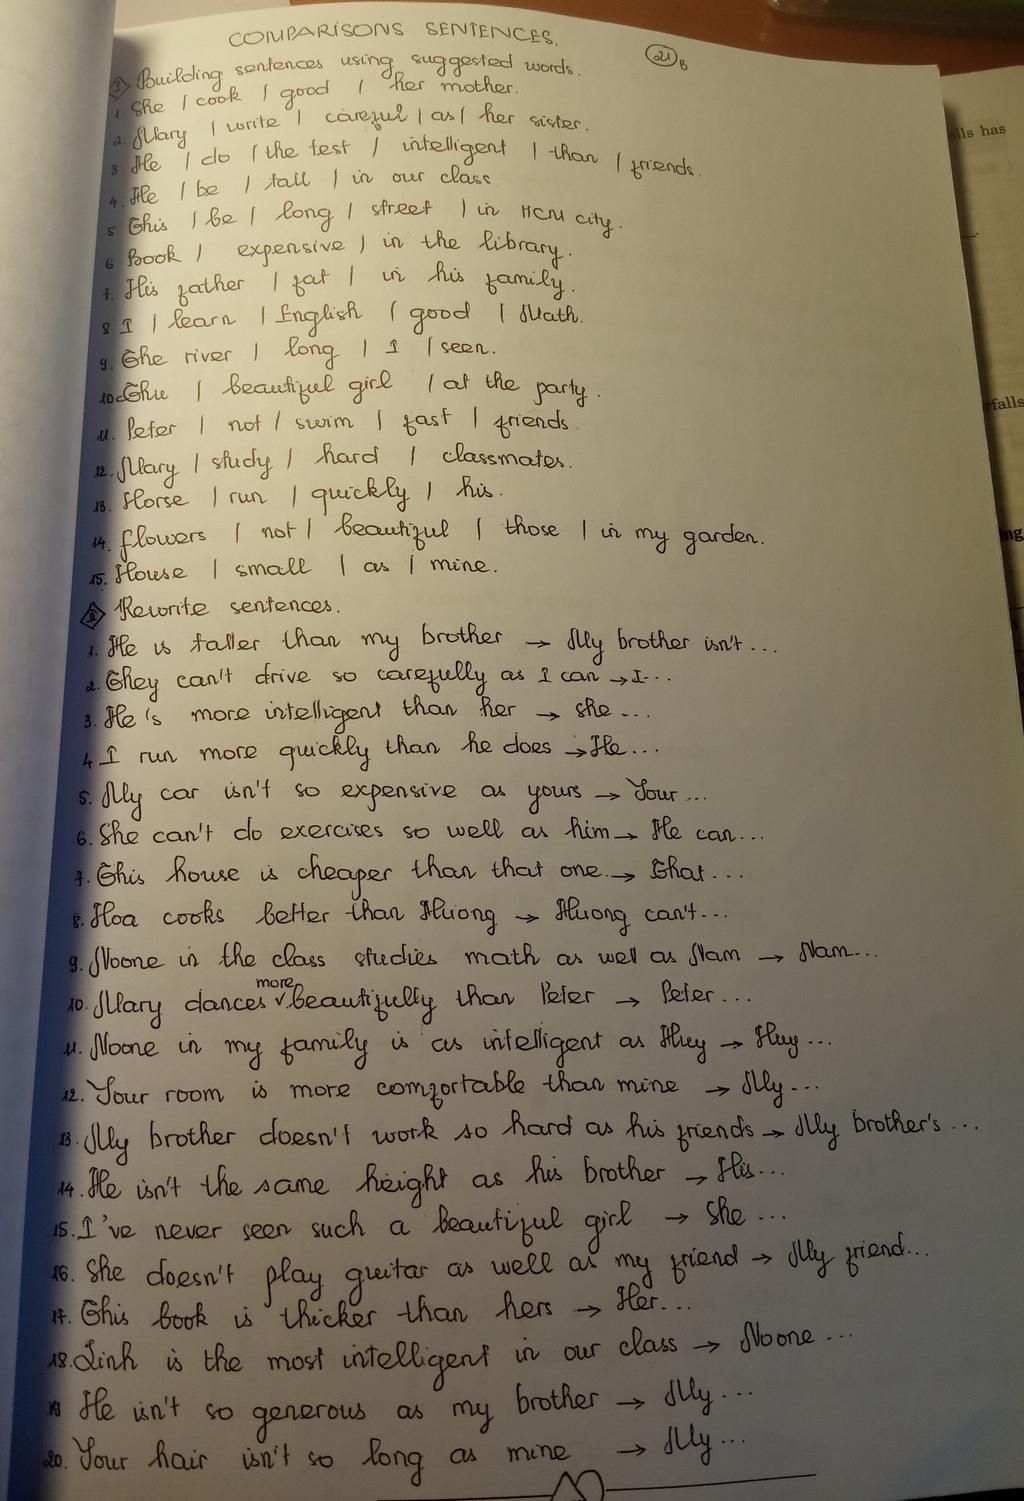 COMPARISONS SENTENCES.
21 B
I Building sentences using suggested words.
1. She / cook / good / her mother.
2. Mary / write / careful / as / her sister.
3. He / do / the test / intelligent / than / friends.
4. He / be / tall / in our class
5. This / be / long / street / in HCM city.
6. Book / expensive / in the library.
7. His father / fat / in his family.
8. I / learn / English / good / Math.
9. The river / long / I / seen.
10. Thu / beautiful girl / at the party.
11. Peter / not / swim / fast / friends.
12. Mary / study / hard / classmates.
13. Horse / run / quickly / his.
14. flowers / not / beautiful / those / in my garden.
15. House / small / as / mine.
II Rewrite sentences.
1. He is taller than my brother → My brother isn't...
2. They can't drive so carefully as I can → I...
3. He's more intelligent than her → She...
4. I run more quickly than he does → He...
5. My car isn't so expensive as yours → Your...
6. She can't do exercises so well as him → He can...
7. This house is cheaper than that one. → That...
8. Hoa cooks better than Huong → Huong can't...
9. Noone in the class studies math as well as Nam → Nam...
10. Mary dances more beautifully than Peter → Peter...
11. Noone in my family is as intelligent as Huy → Huy...
12. Your room is more comfortable than mine → My...
13. My brother doesn't work so hard as his friends → My brother's...
14. He isn't the same height as his brother → His...
15. I've never seen such a beautiful girl → She...
16. She doesn't play guitar as well as my friend → My friend...
17. This book is thicker than hers → Her...
18. Linh is the most intelligent in our class → Noone...
19 He isn't so generous as my brother → My...
20. Your hair isn't so long as mine → My...
lls has
rfalls
ng